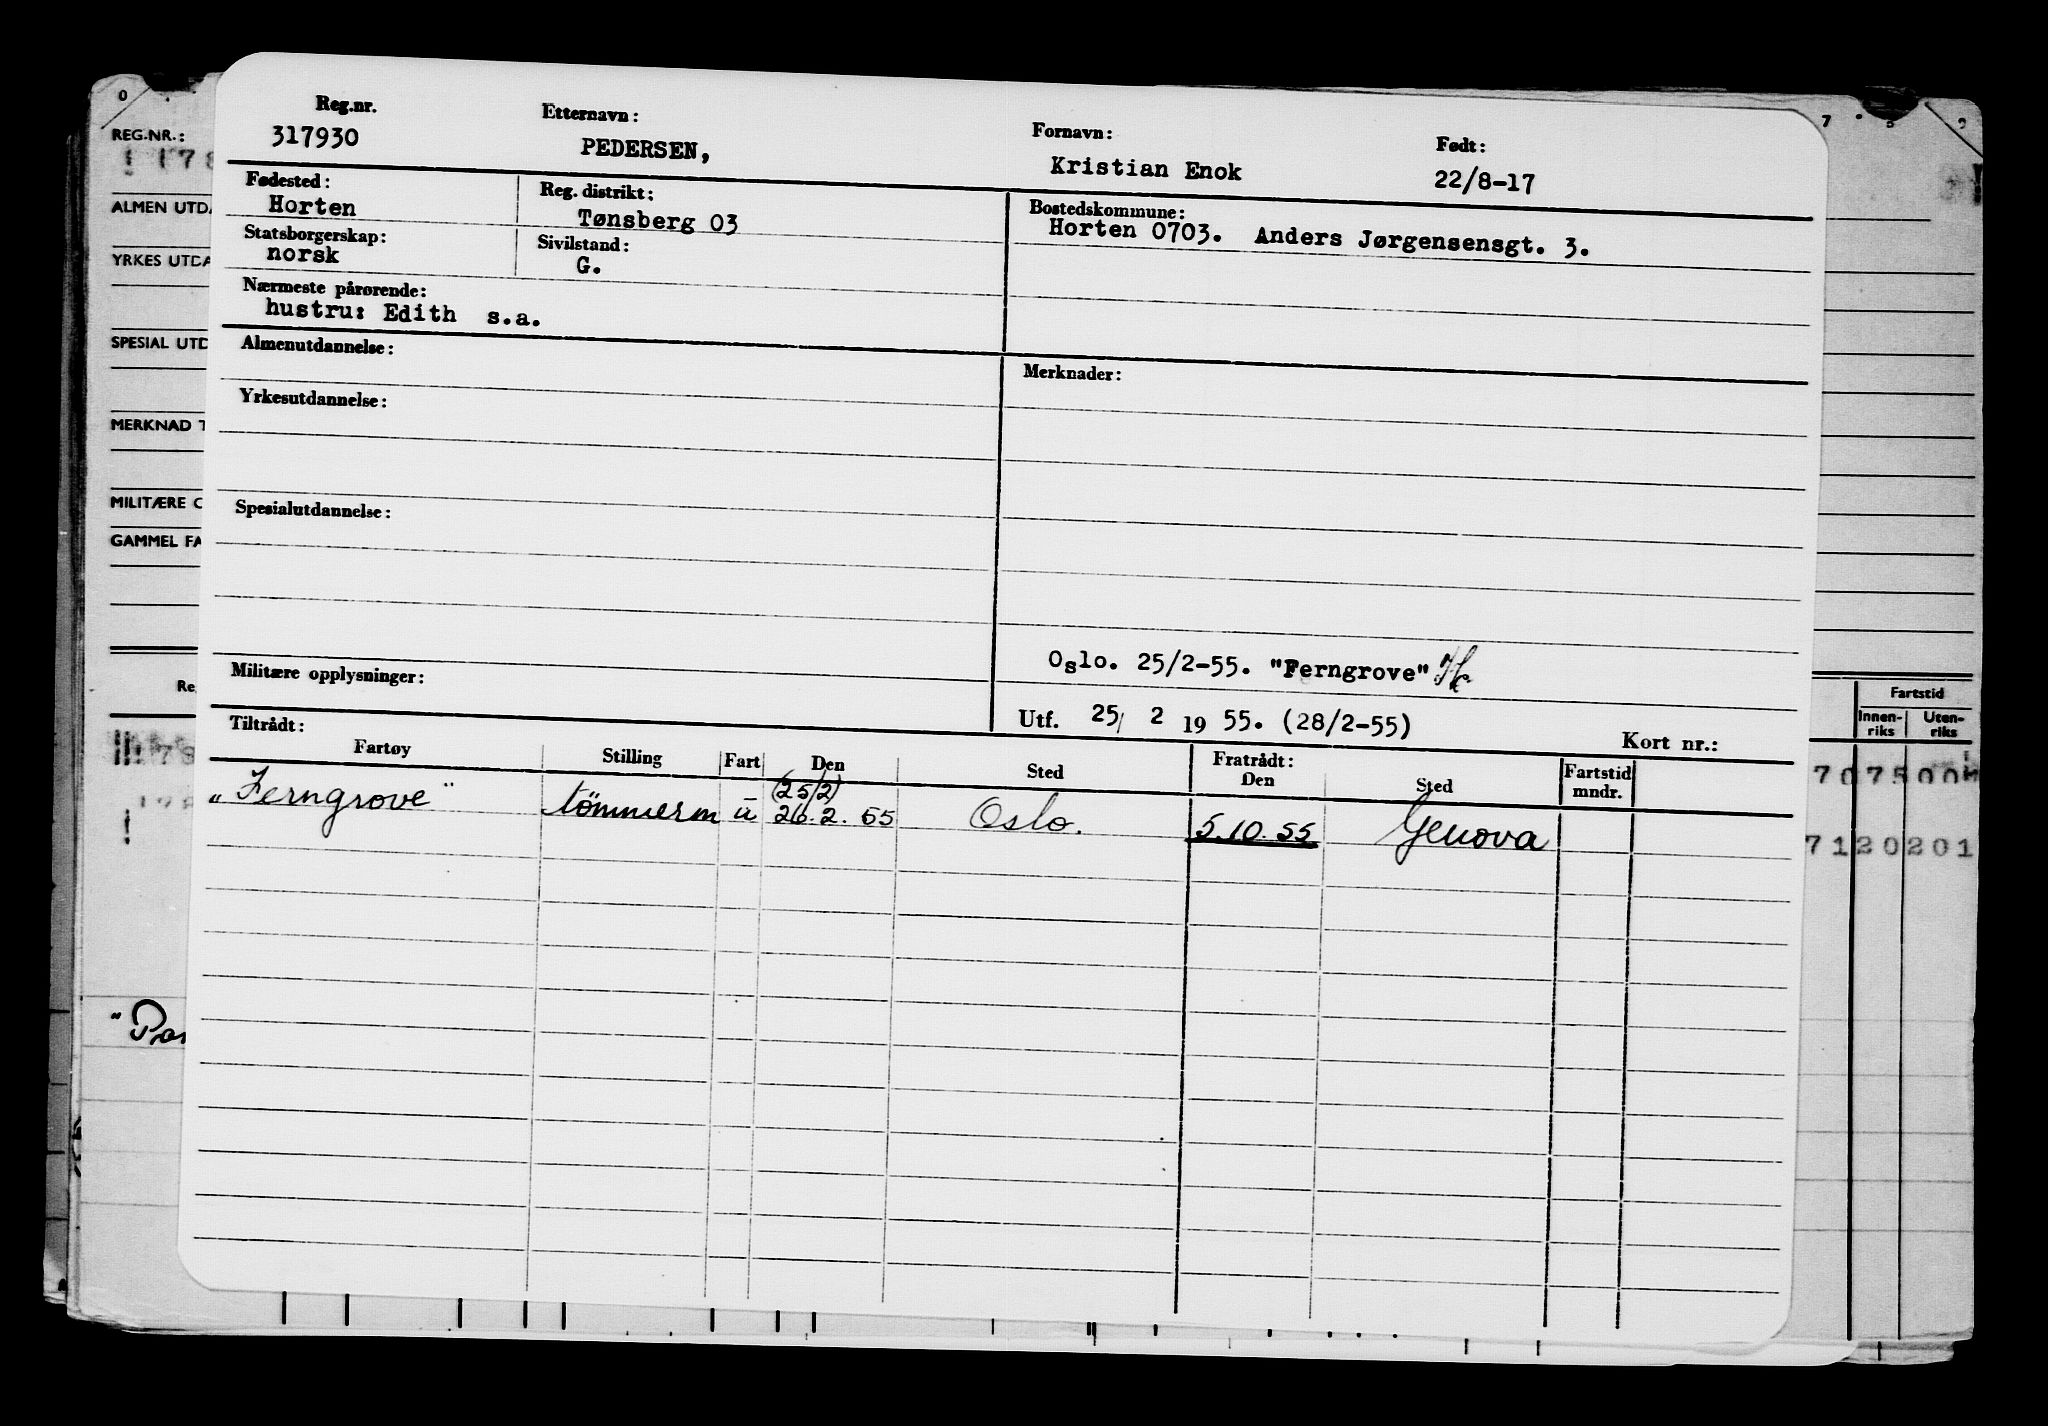 Reg.nr. Etternavn: Fornavn: Født:
317930 PEDERSEN, Kristian Enok 22/8-17
Fødested: Reg. distrikt: Bostedskommune:
Horten Tønsberg 03 Horten 0703. Anders Jørgensensgt. 3.
Statsborgerskap: Sivilstand:
norsk G.
Nærmeste pårørende:
hustru: Edith s.a.
Almenutdannelse: Merknader:
Yrkesutdannelse:
Spesialutdannelse:
Oslo. 25/2-55. "Ferngrove"
Militære opplysninger:
Utf. 25/ 2 19 55. (28/2-55) Kort nr.:
Tiltrådt: Fratrådt:
Fartøy Stilling Fart Den Sted Den Sted Fartstid mndr.
(25/2)
"Ferngrove" tömmerm u 26.2.55 Oslo. 5.10.55 Genova
0 7 8 9
REG.-NR.:
178
ALMEN UTDA
YRKES UTDA
SPESIAL UTD
MERKNAD T
MILITÆRE O
GAMMEL FA
Re
Fartstid
Innen-riks Uten-riks
707500
7120201
"Par